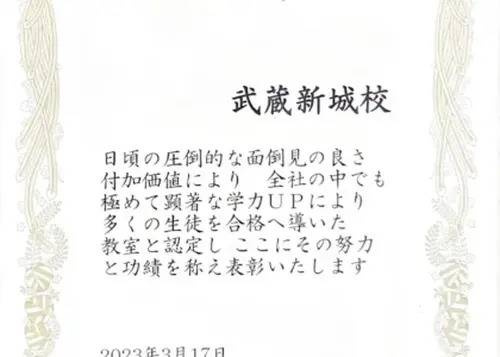 武蔵新城校
日頃の圧倒的な面倒見の良さ
付加価値により 全社の中でも
極めて顕著な学力UPにより
多くの生徒を合格へ導いた
教室と認定し ここにその努力
と功績を称え表彰いたします
2023年3月17日